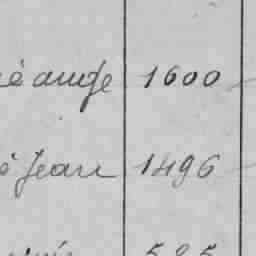 é ange 1600
é Jean 1496
525